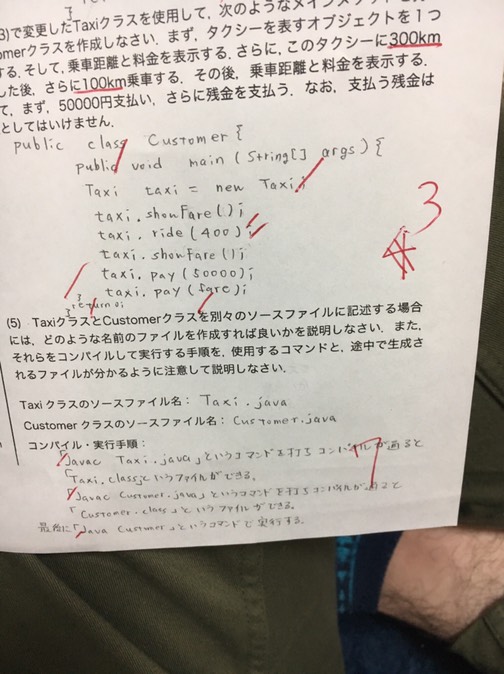 3)で変更したTaxiクラスを使用して,次のような
omerクラスを作成しなさい.まず,タクシーを表すオブジェクトを1つ
する.そして,乗車距離と料金を表示する.さらに,このタクシーに300km
した後,さらに100km乗車する.その後,乗車距離と料金を表示する.
て,まず,50000円支払い,さらに残金を支払う.なお,支払う残金は
としてはいけません.
public class Customer {
public void main (String[] args) {
Taxi taxi = new Taxi;
taxi.showFare();
taxi.ride(400);
taxi.showFare();
taxi.pay(50000);
taxi.pay(fare);
return 0;
3
(5) TaxiクラスとCustomerクラスを別々のソースファイルに記述する場合
には,どのような名前のファイルを作成すれば良いかを説明しなさい.また,
それらをコンパイルして実行する手順を,使用するコマンドと,途中で生成さ
れるファイルが分かるように注意して説明しなさい.
Taxiクラスのソースファイル名: Taxi.java
Customerクラスのソースファイル名: Customer.java
コンパイル・実行手順:
「Javac Taxi.java」というコマンドを打ちコンパイルが通ると
「Taxi.class」というファイルができる.
「Javac Customer.java」というコマンドを打ちコンパイルが通ると
「Customer.class」というファイルができる.
最後に「Java Customer」というコマンドで実行する.
7